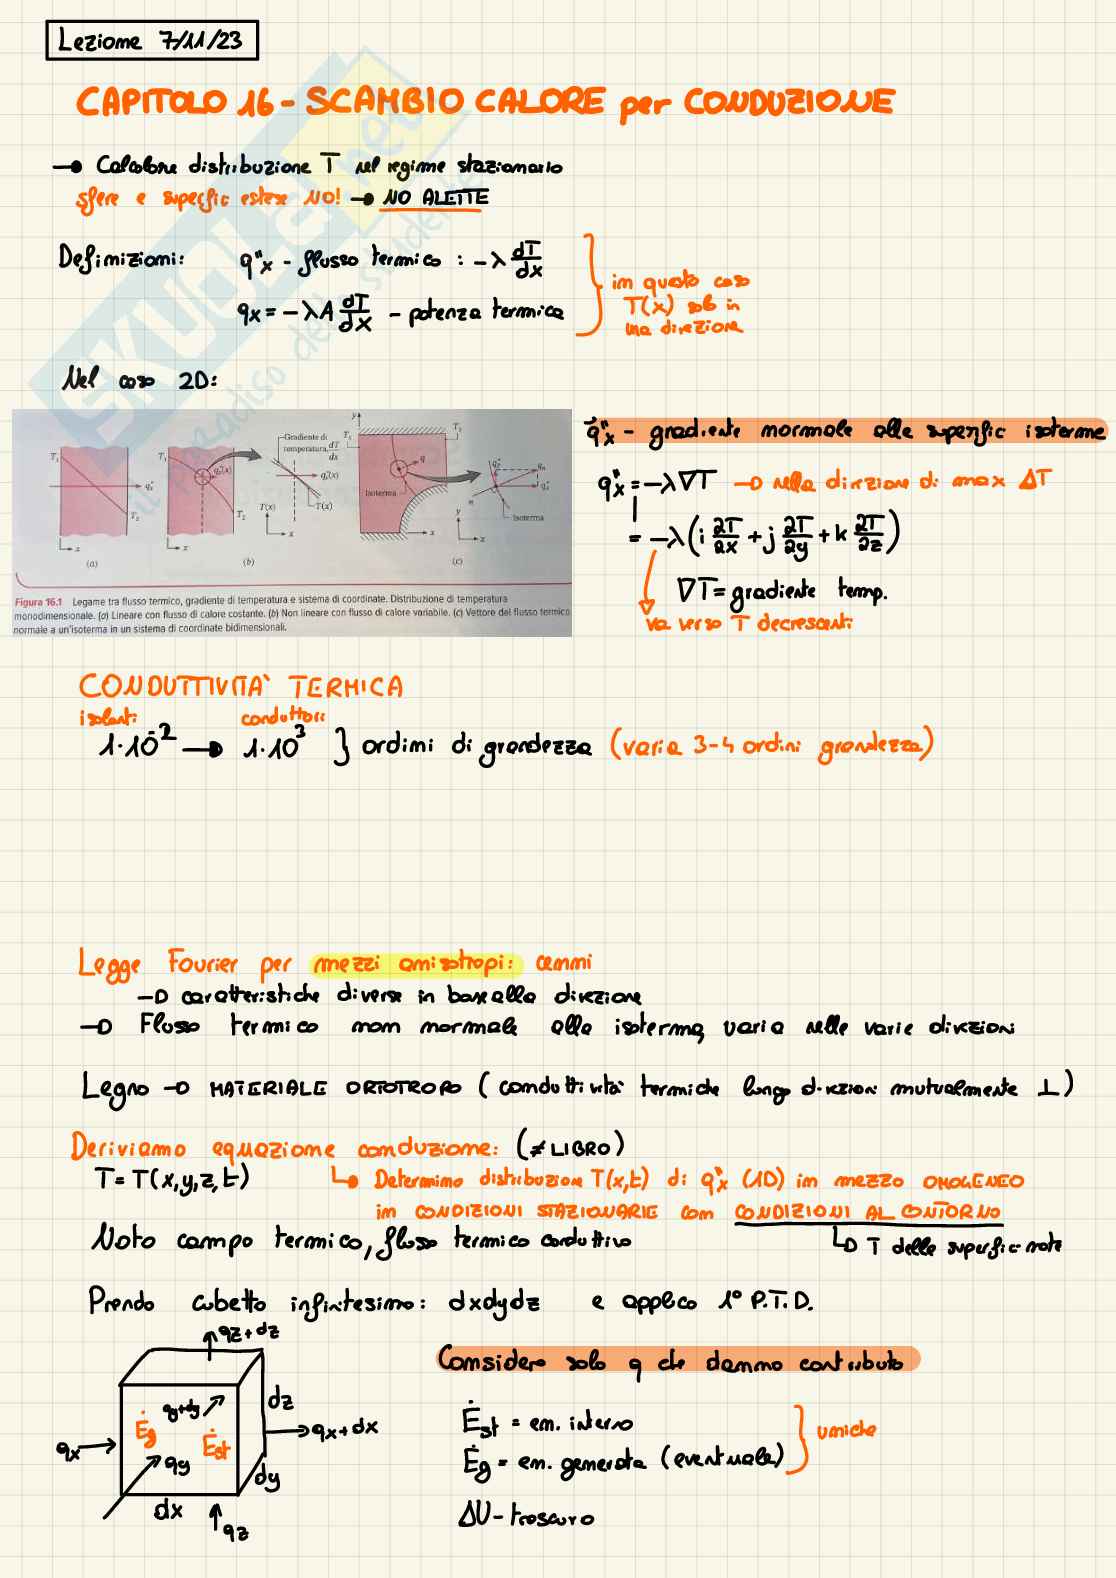 Lezione 7/11/23
CAPITOLO 16 - SCAMBIO CALORE per CONDUZIONE
→ Calcolare distribuzione T nel regime stazionario
sfere e superfic estese NO! → NO ALETTE
Definizioni: q"x - flusso termico : -λ dT/dx
qx = -λA dT/dx - potenza termica
in questo caso
T(x) solo in
una direzione
Nel caso 2D:
T₁ T₂ q"ₓ x (a)
T₁ q"ₓ(x) T₂ x Gradiente di temperatura, dT/dx q"ₓ(x) T(x) T(x) x (b)
y T₁ T₂ q Isoterma x y x n Isoterma (c)
Figura 16.1 Legame tra flusso termico, gradiente di temperatura e sistema di coordinate. Distribuzione di temperatura
monodimensionale. (a) Lineare con flusso di calore costante. (b) Non lineare con flusso di calore variabile. (c) Vettore del flusso termico
normale a un'isoterma in un sistema di coordinate bidimensionali.
q"x - gradiente normale alle superfic isoterme
q"x = -λ∇T → nella direzione di max ΔT
= -λ(i ∂T/∂x + j ∂T/∂y + k ∂T/∂z)
∇T = gradiente temp.
va verso T decrescenti
CONDUTTIVITA' TERMICA
isolanti conduttori
1·10⁻² → 1·10³ } ordini di grandezza (varia 3-4 ordini grandezza)
Legge Fourier per mezzi anisotropi: cenni
→ caratteristiche diverse in base alla direzione
→ Flusso termico non normale alle isoterma, varia nelle varie direzioni
Legno → MATERIALE ORTOTROPO (conduttività termiche lungo direzioni mutualmente ⊥)
Deriviamo equazione conduzione: (≠ LIBRO)
T = T(x,y,z,t) ↳ Determino distribuzione T(x,t) di q"x (1D) in mezzo OMOGENEO
in CONDIZIONI STAZIONARIE con CONDIZIONI AL CONTORNO
Noto campo termico, flusso termico conduttivo ↳ T delle superfici note
Prendo cubetto infinitesimo: dxdydz e applico 1° P.T.D.
qz+dz
Considero solo q che danno contributo
qy+dy dz
Ėg Ėst qx+dx
qx qy dy
dx qz
Ėst = en. interno
Ėg = en. generata (eventuale) } uniche
ΔU - trascuro
SKUOLA.net
il paradiso dello studente